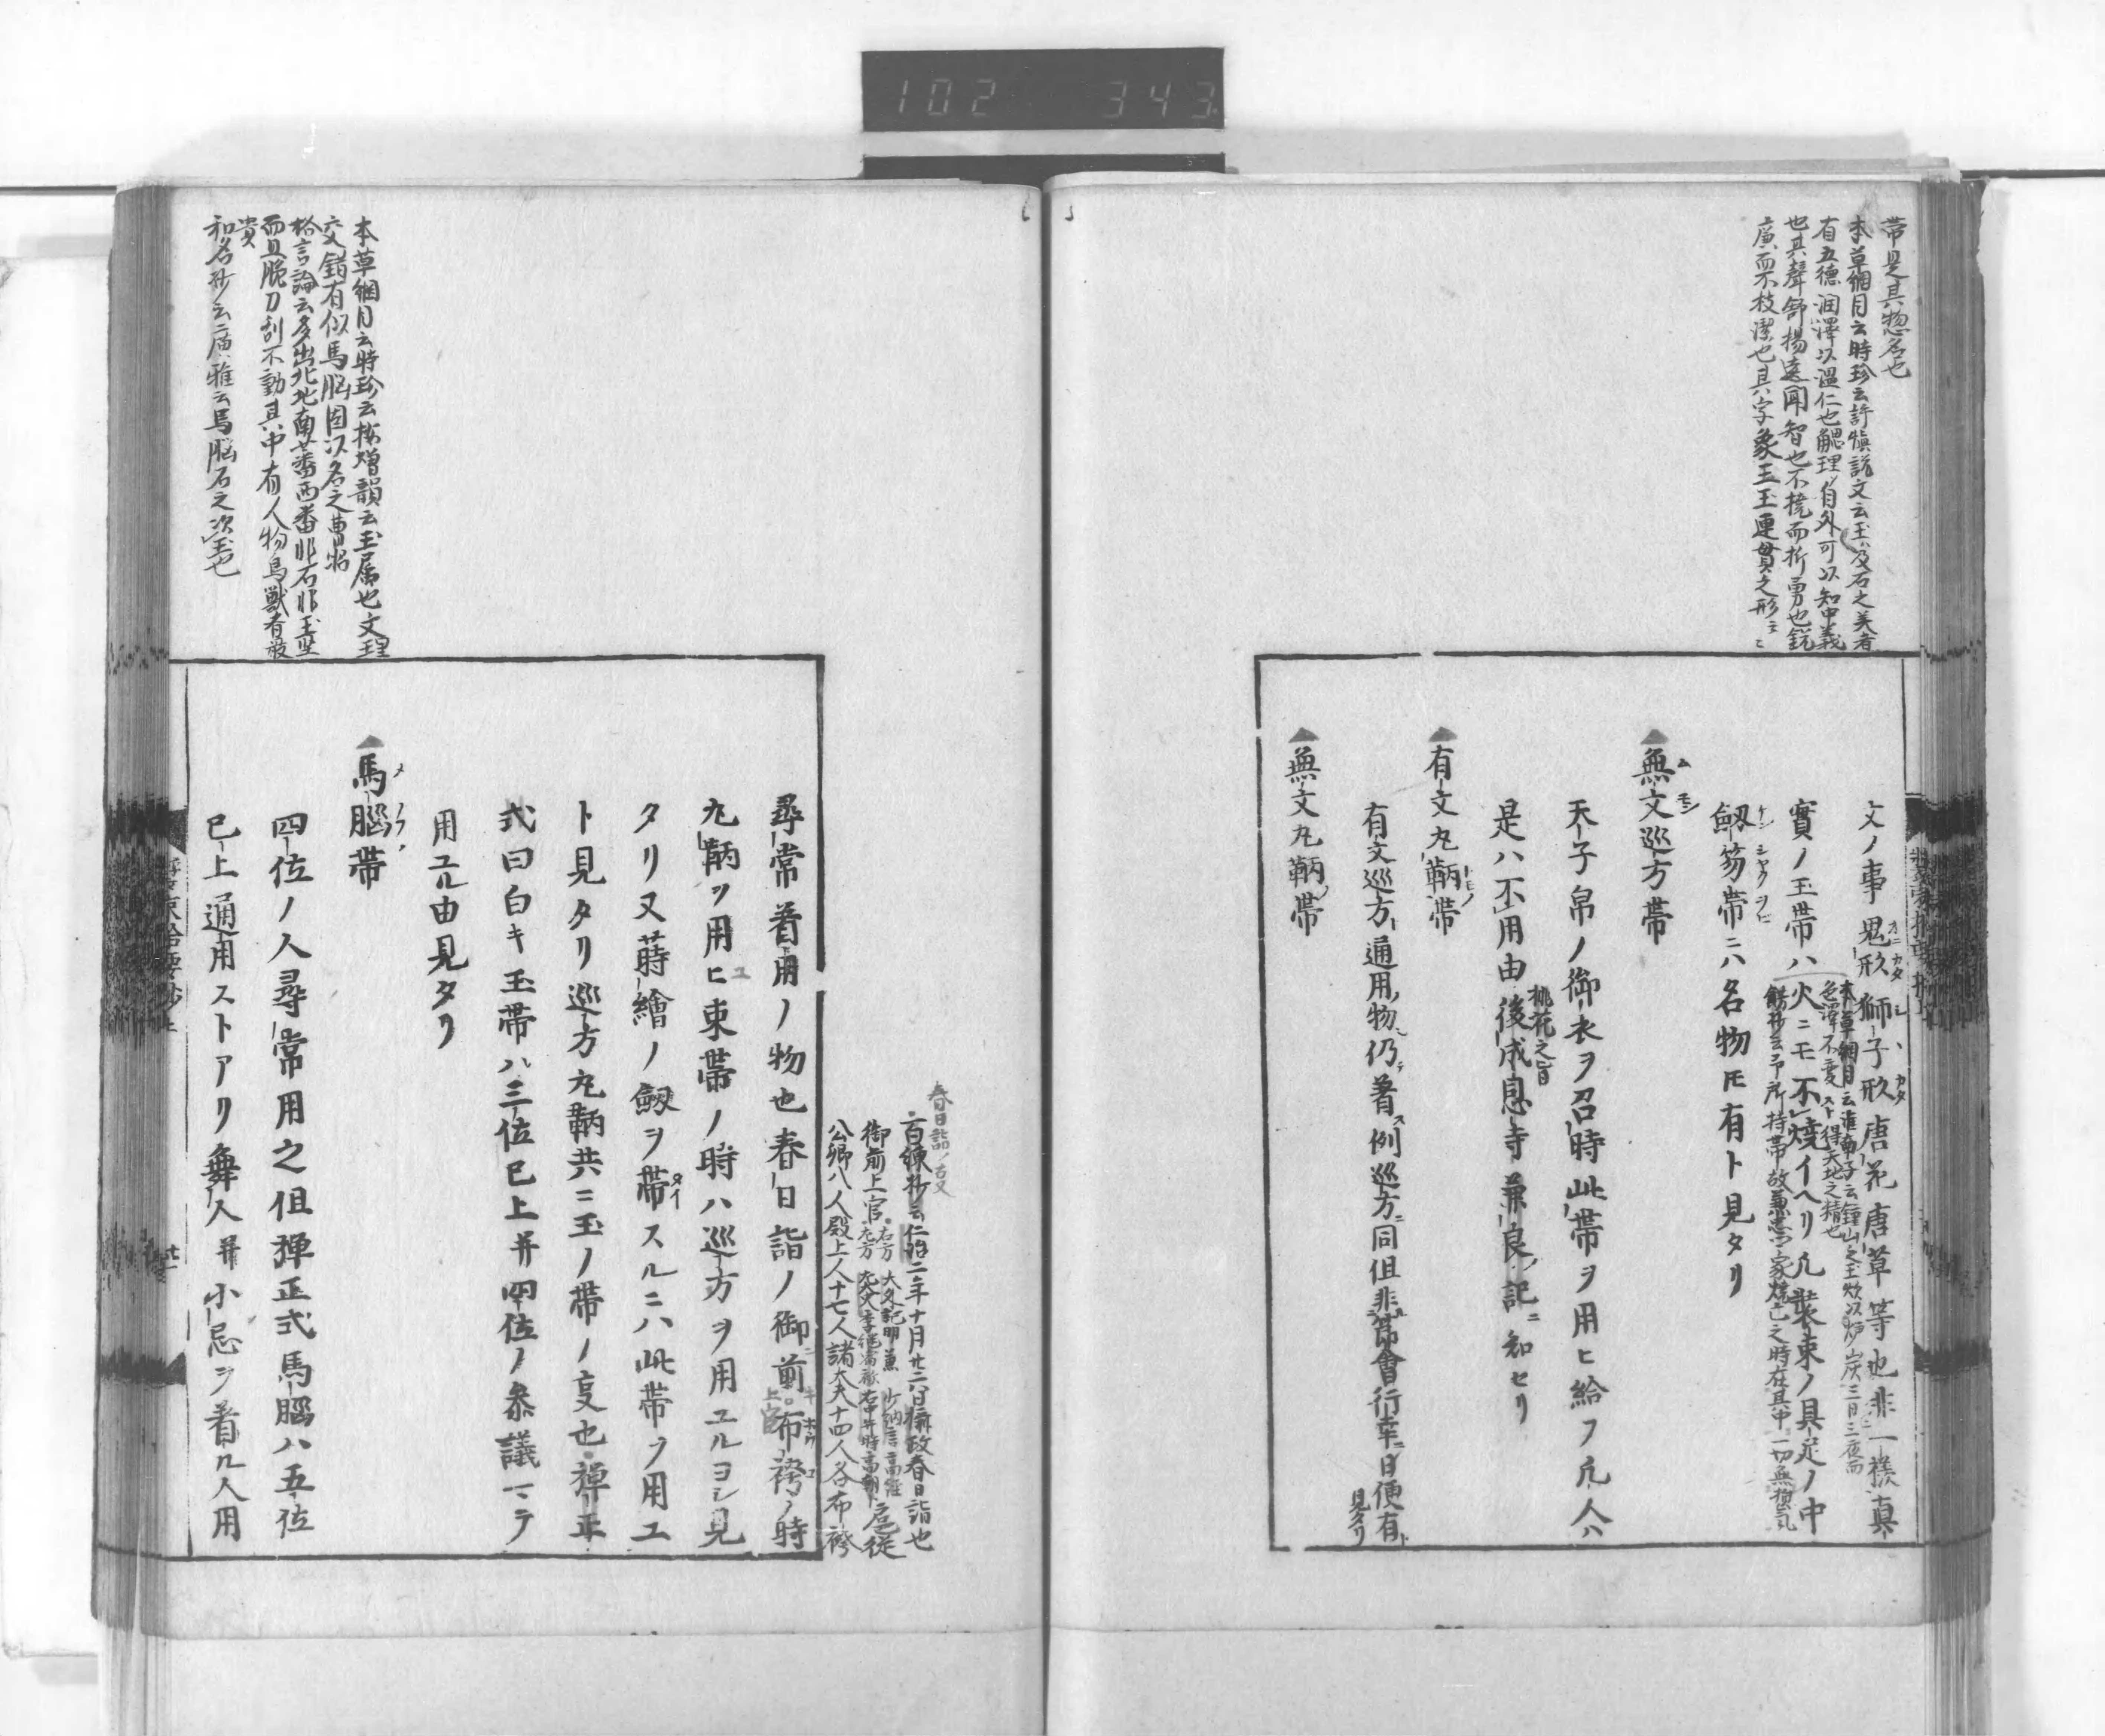 102 343
帯是其惣名也
本草綱目云時珍云許慎説文云玉乃石之美者
有五徳润澤以温仁也䚡理自外可以知中義
也其聲舒揚遠聞智也不撓而折勇也鋭
廉而不枝潔也其字象三玉連貫之形云々
文ノ事鬼形獅子形唐花唐草等也非一様真
實ノ玉帯ハ火ニモ不焼イヘリ凡装束ノ具足ノ中
本草綱目云淮南子云鐘山之玉炊以炉炭三日三夜而
色澤不変得天地之精也
劔笏帯ニハ名物モ有ト見タリ
無文巡方帯
天子帛ノ御衣ヲ召時此帯ヲ用ヒ給フ凡人ハ
是ハ不用由後成恩寺兼良ノ記ニ知セリ
桃花之旨
有文丸鞆帯
有文巡方通用物仍著例巡方同但非節會行幸日便有
見タリ
無文丸鞆帯
春日詣ノ古文
百練抄云仁治二年十月廿二日摂政春日詣也
御前上官
公卿八人殿上人十七人諸大夫十四人各布袴
尋常着用ノ物也春日詣ノ御前布袴ノ時
上官
丸鞆ヲ用ヒ束帯ノ時ハ巡方ヲ用ユルヨシ見
タリ又蒔繪ノ劔ヲ帯スルニハ此帯ヲ用ユ
ト見タリ巡方丸鞆共ニ玉ノ帯ノ㕝也弾正
式曰白キ玉帯ハ三位已上并四位ノ参議マテ
用ユル由見タリ
馬脳帯
四位ノ人尋常用之但弾正式馬脳ハ五位
已上通用ストアリ舞人并小忌ヲ着ル人用
本草綱目云時珍云按増韻云玉属也文理
交錯有似馬脳因以名之曹昭
格古論云多出北地南蕃西番非石非玉堅
而且脆刀刮不動其中有人物鳥獣者最
貴
和名抄云廣雅云馬脳石之次玉也